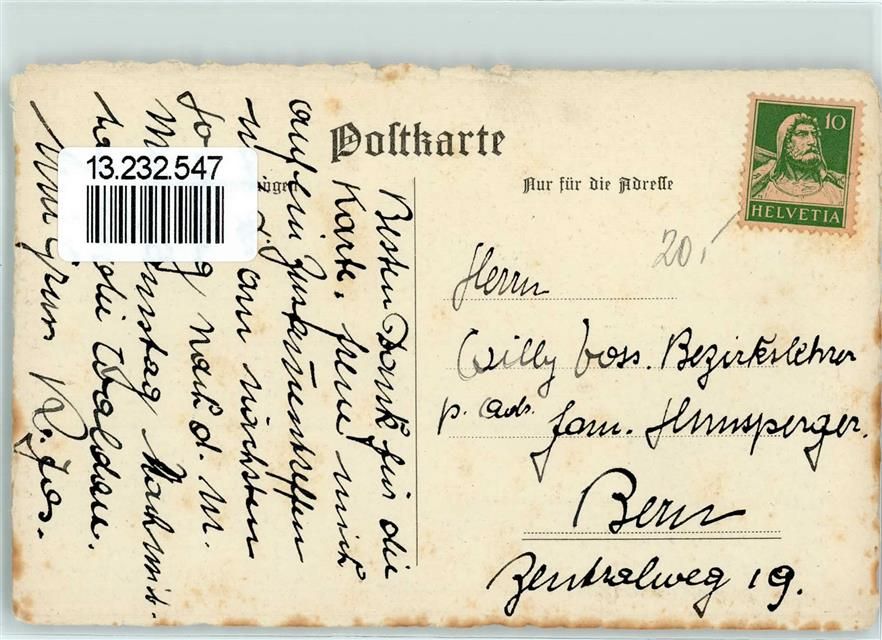 13.232.547
Postkarte
Nur für die Adresse
10
HELVETIA
20,-
Herrn
Willy Voss. Bezirkslehrer
p. Adr. Fam. Hunsperger.
Bern
Zentralweg 19.
Besten Dank für die
Karte, freue mich
auf ein Zusammentreffen
am nächsten
nach d. M.
Nachmit-
die Waldau.
Gruss